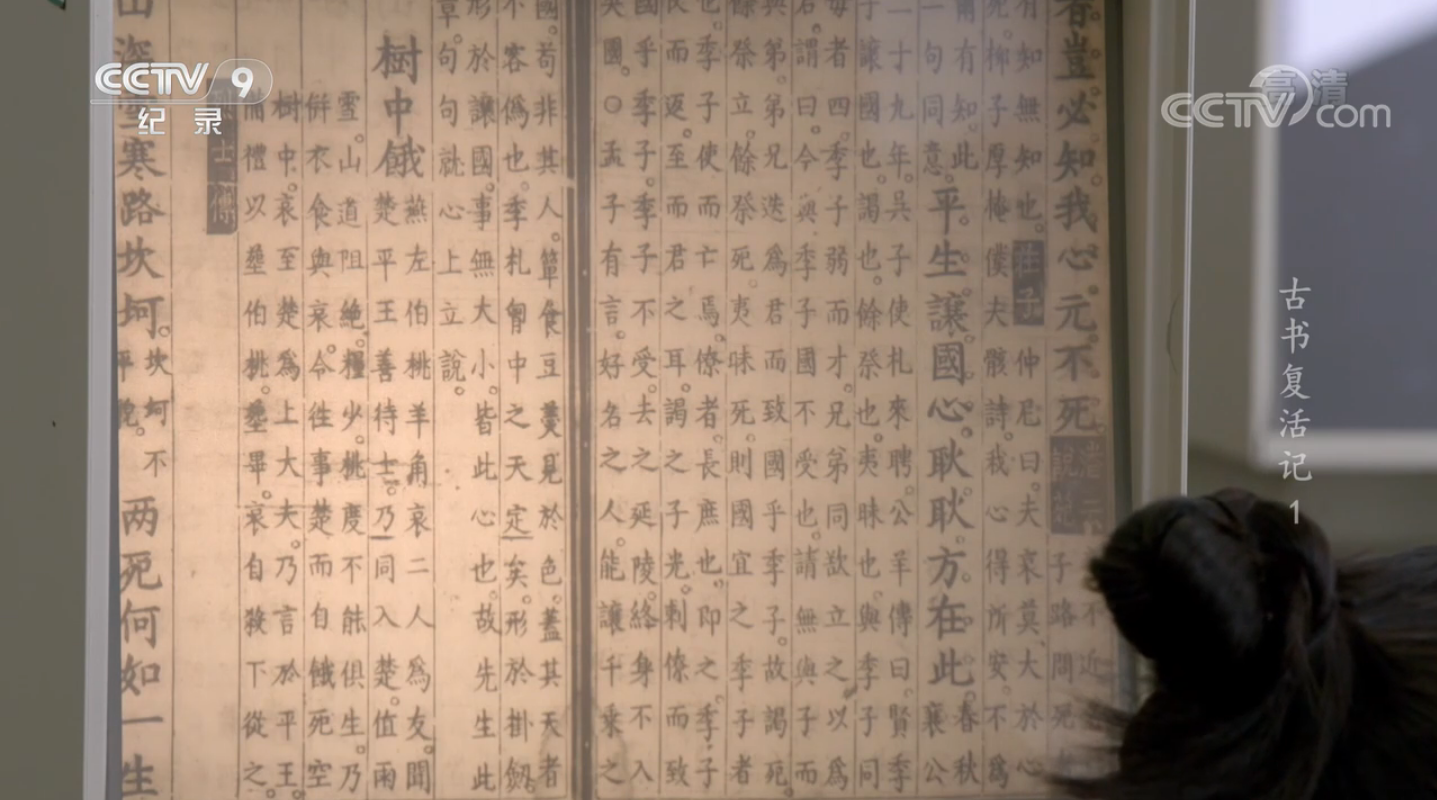 CCTV 9
纪录
CCTV.com
高清
古书复活记 1
者豈必知我心。元不死。說苑
子路問死
有知無知也。莊子仲尼曰。夫哀莫大於心
死。柳子厚掩僕夫骸詩。我心得所安。不為
爾有知。此
一句同意。平生讓國心。耿耿方在此。春秋
襄公
二十九年。吳子使札來聘。公羊傳曰。賢季
子讓國也。謁也。餘祭也。夷昧也。與季子同
母者四。季子弱而才。兄弟同欲立之以為
君。謂曰。今與季子國。不受也。請無與子而
與弟。弟兄迭為君。而致國乎季子。故謁死。
餘祭立。餘祭死。夷昧死。則國宜之季子者
也。季子使而亡焉。僚者。長庶也。即之。季子
而返。至而君之耳。謁之子光。刺僚而致
國乎季子。季子不受。去之延陵。終身不入
吳國。○孟子有言。好名之人。能讓千乘之
國。苟非其人。簞食豆羹見於色。蓋其天者
不容偽也。季札胷中之天定矣。形於掛劔。
形於讓國。事無大小。皆此心也。故先生此
章。句句就心上立說。
樹中餓
燕左伯桃羊角哀二人為友。聞
楚平王善待士。乃同入楚。值雨
雪。山道阻絶。糧少。桃度不能俱生。乃
併衣食與哀。令往事楚。而自餓死空
樹中。哀至楚為上大夫。乃言於平王。
備禮以塟伯桃。塟畢。哀自殺下從之。
士傳
山深雪寒路坎坷。坎坷不
平貌。两死何如一生